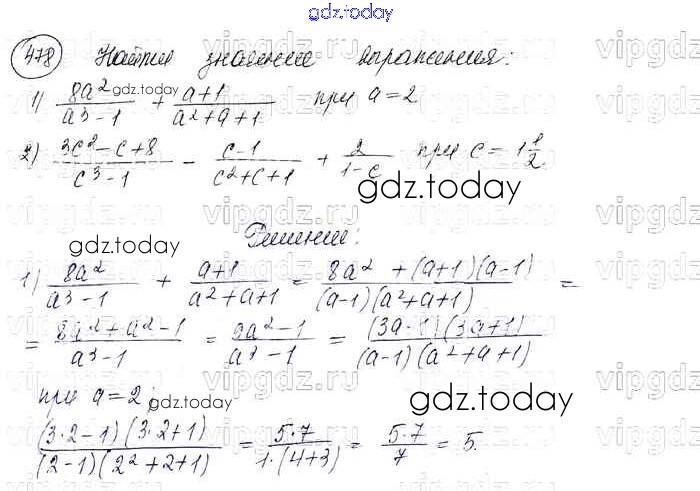 gdz.today
478 Найти значение выражения:
1) 8a²/(a³-1) + (a+1)/(a²+a+1) при a=2
gdz.today
2) (3c²-c+8)/(c³-1) - (c-1)/(c²+c+1) + 2/(1-c) при c=1 1/2.
gdz.today
gdz.today
Решение:
1) 8a²/(a³-1) + (a+1)/(a²+a+1) = (8a²+(a+1)(a-1))/((a-1)(a²+a+1)) =
= (8a²+a²-1)/(a³-1) = (9a²-1)/(a³-1) = ((3a-1)(3a+1))/((a-1)(a²+a+1))
при a=2;
gdz.today
((3·2-1)(3·2+1))/((2-1)(2²+2+1)) = 5·7/(1·(4+3)) = 5·7/7 = 5.